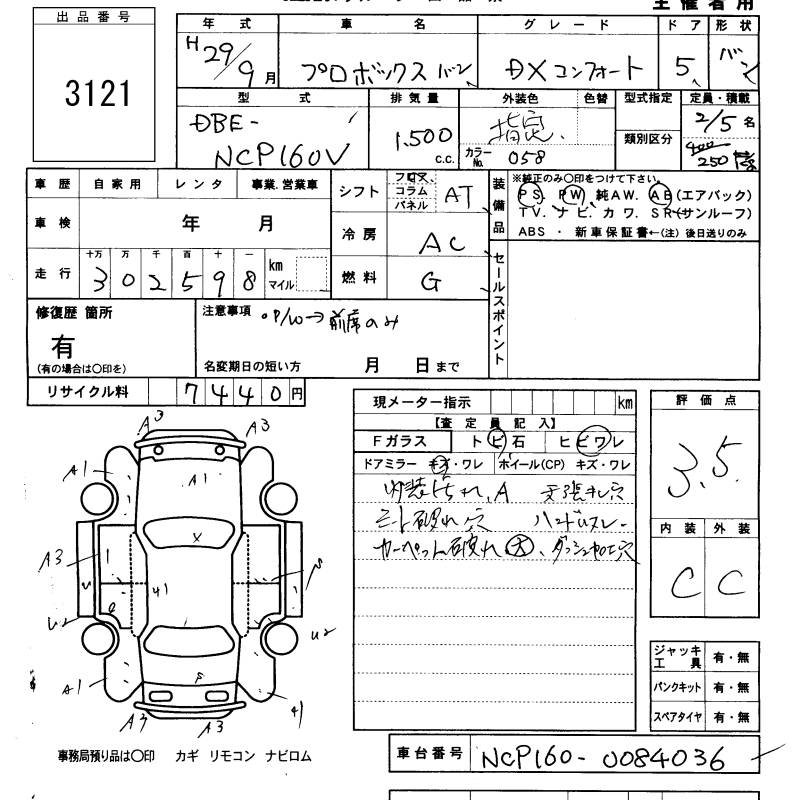 主催者用
出品番号
3121
年式 車名 グレード ドア 形状
H29/9月 プロボックスバン DXコンフォート 5 バン
型式 排気量 外装色 色替 型式指定 定員・積載
DBE-
NCP160V
1.500 c.c.
指定
カラーNo. 058
類別区分
2/5名
400
250
車歴 自家用 レンタ 事業.営業車
車検 年 月
走行 十万 万 千 百 十 一
302598 km マイル
シフト フロア コラム パネル AT
冷房 AC
燃料 G
装備品
※純正のみ〇印をつけて下さい。
PS. PW 純AW. AB(エアバック)
TV. ナビ. カワ. SR(サンルーフ)
ABS ・ 新車保証書←(注) 後日送りのみ
セールスポイント
修復歴 箇所
有
(有の場合は〇印を)
注意事項 ○P/W→前席のみ
名変期日の短い方 月 日まで
リサイクル料 7440円
現メーター指示 km
【査定員記入】
Fガラス トビ石 ヒビワレ
ドアミラー キズ・ワレ ホイール(CP) キズ・ワレ
内装汚れ、A 天張キレ穴
シート破れ 穴 ハンドルスレ
カーペット破れ 大、ダッシュ加工穴
評価点
3.5
内装 外装
C C
ジャッキ工具 有・無
パンクキット 有・無
スペアタイヤ 有・無
A3 A3
A1 A1
X
A3
41
U2 U2
A1 41
A3 A3
事務局預り品は〇印 カギ リモコン ナビロム
車台番号 NCP160-0084036